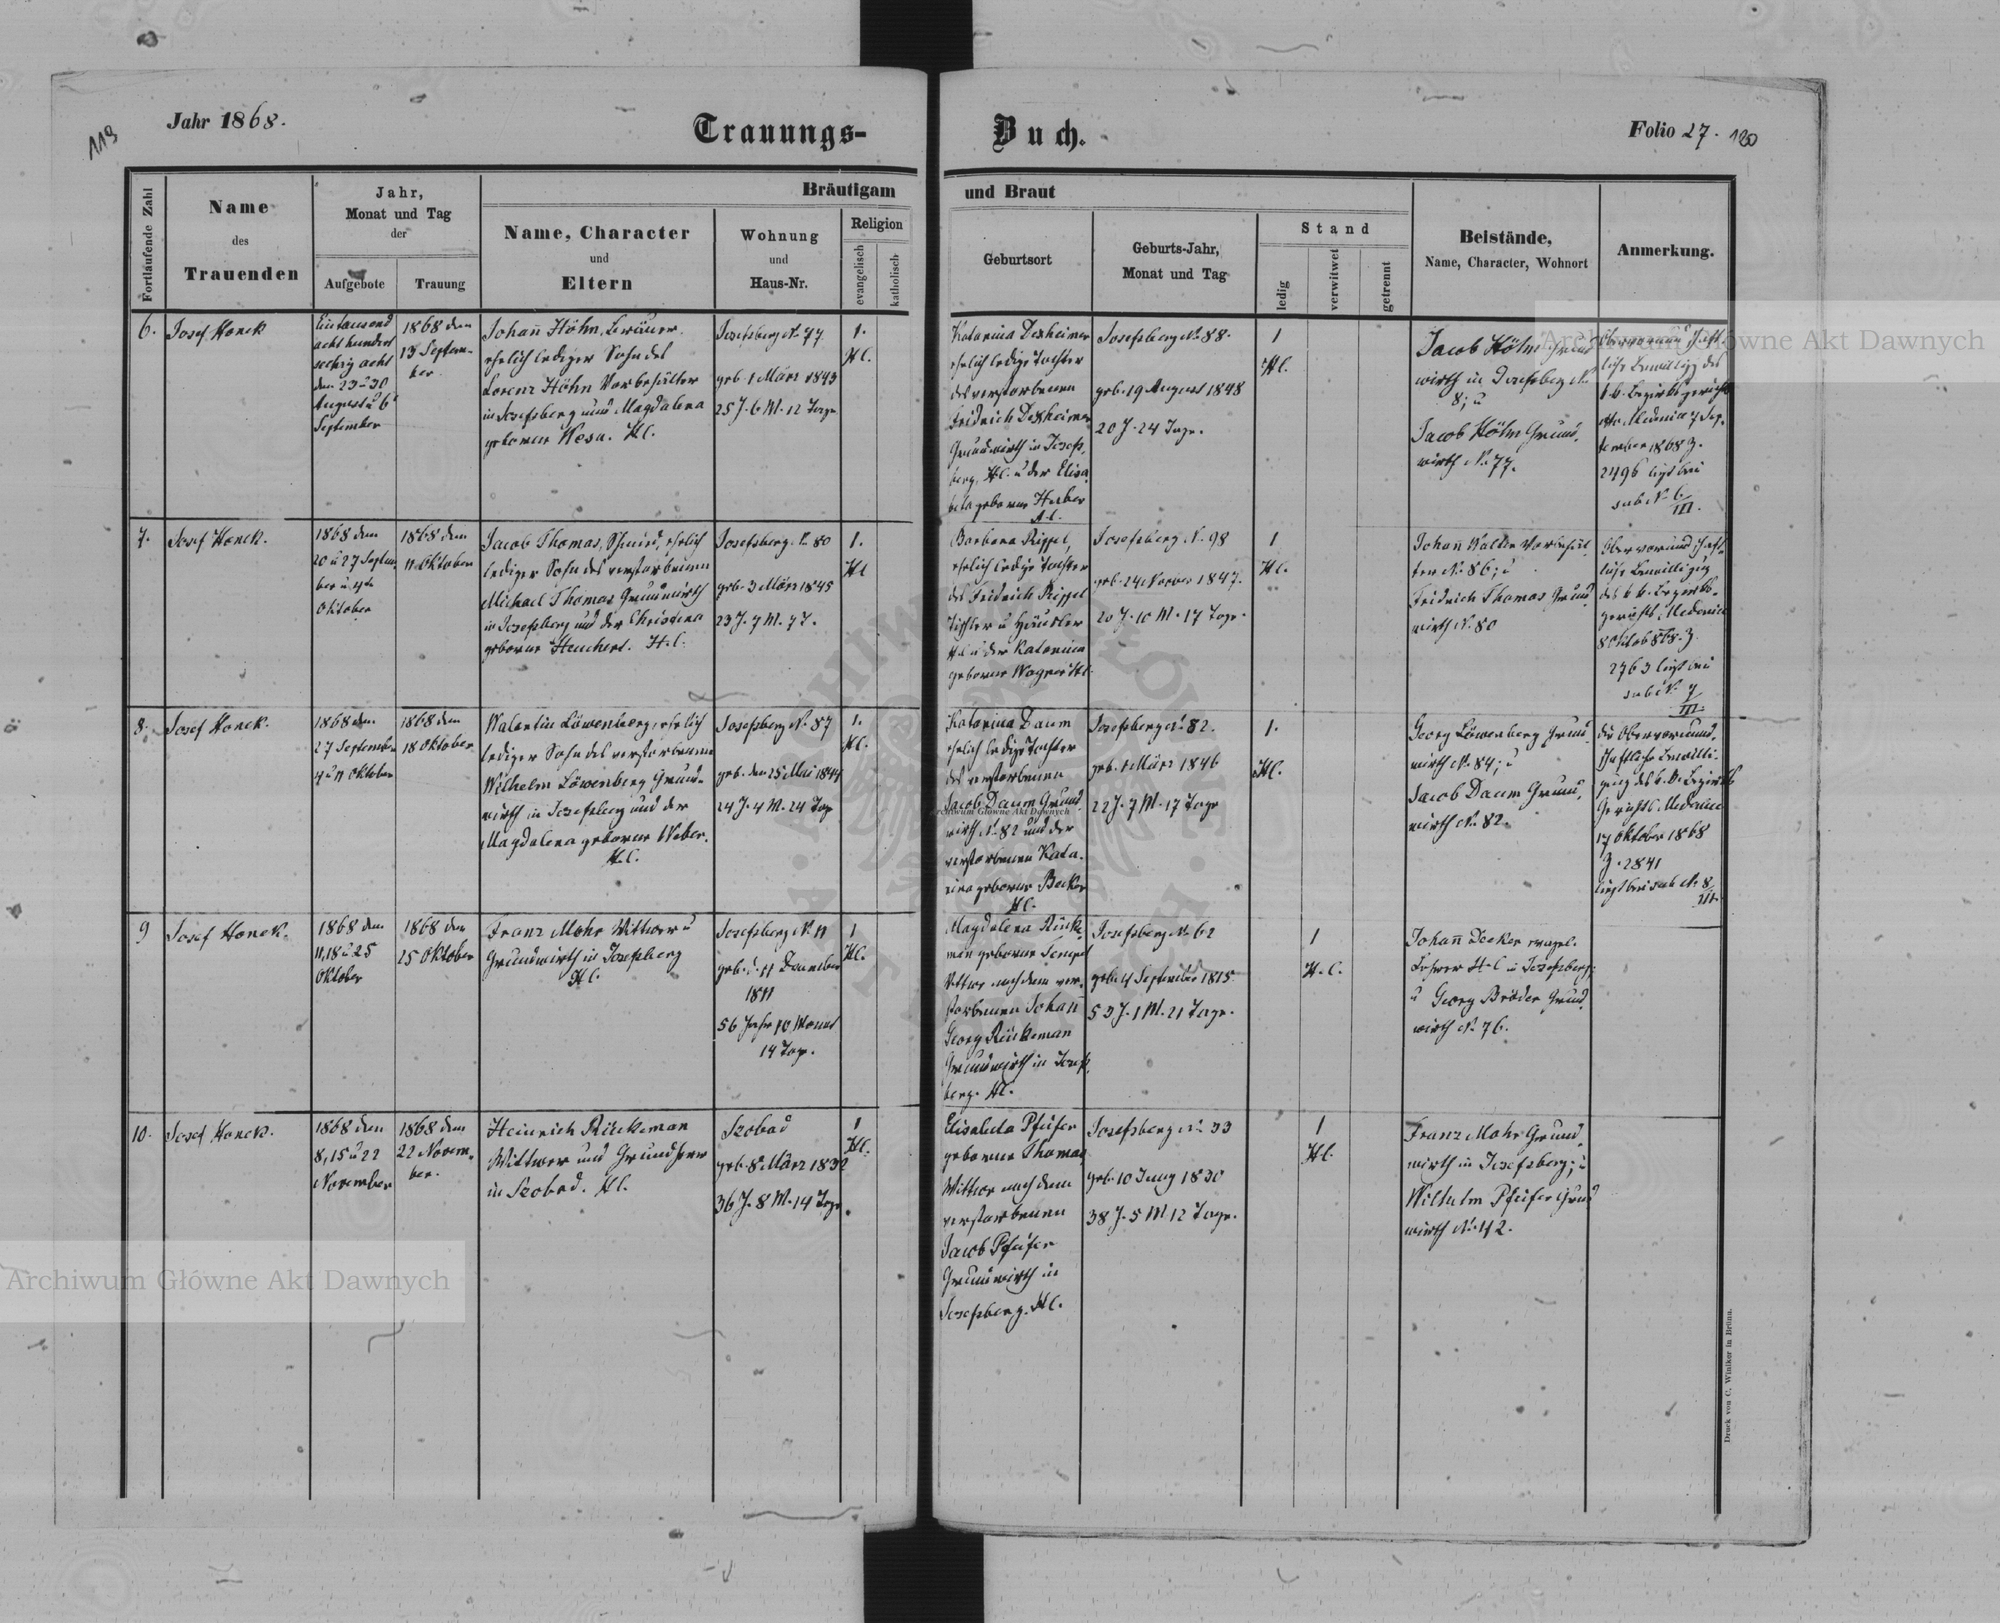 119
Jahr 1868.
Trauungs-
Buch.
Folio 27.
120
Fortlaufende Zahl
Name
des
Trauenden
Jahr,
Monat und Tag
der
Aufgebote
Trauung
Bräutigam
Name, Character
und
Eltern
Wohnung
und
Haus-Nr.
Religion
evangelisch
katholisch
und Braut
Geburtsort
Geburts-Jahr,
Monat und Tag
Stand
ledig
verwitwet
getrennt
Beistände,
Name, Character, Wohnort
Anmerkung.
6.
Josef Honek
Eintausend
acht hundert
sechzig acht
den 23 u 30
August u 6
September
1868 den
13 Septem-
ber
Johañ Höhn,
ehelich lediger Sohn des
Lorenz Höhn Vorbehälter
in Josefsberg und Magdalena
geborne H.C.
Josefsberg No 77
geb. 1 März 1843
25 J. 6 M. 12 Tage
1.
H.C.
Katarina Dexheimer
ehelich ledige Tochter
des verstorbenen
Fridrich Dexheimer
Grundwirth in Josefs-
berg, H.C. u der Elisa-
beta geborne Herber
H.C.
Josefsberg No 88.
geb. 19 August 1848
20 J. 24 Tage.
1
H.C.
Jacob Höhn Grund
wirth in Josefsberg No
8; u
Jacob Höhn Grund-
wirth No 77.
liche Bewilligg des
k. k. Bezirksgerichts
Medenice 7 Sep-
tember 1868 Z.
2496 liegt bei
sub No 6
III.
7.
Josef Honek.
1868 den
20 u 27 Septem-
ber u 4ten
Oktober
1868 den
11 Oktober
Jacob Thomas, Schmied, ehelich
lediger Sohn des verstorbenen
Michael Thomas Grundwirth
in Josefsberg und der Christina
geborne Heuchert. H.C.
Josefsberg No 80
geb. 3 März 1845
23 J. 7 M. 7 T.
1.
H.C
Barbara Rippel,
ehelich ledige Tochter
des Fridrich Rippel
Tischler u Häusler
H.C u der Katarina
geborne Wagner H.C.
Josefsberg No 98
geb. 24 Novber 1847.
20 J. 10 M. 17 Tage.
1
H.C.
Johañ Walter Vorbehäl-
ter No 86; u
Fridrich Thomas Grund
wirth No 80
Obervormundschaft-
liche Bewilligung
des k k. Bezirks-
gericht Medenice
8 Oktob 868. Z.
2763 liegt bei
sub No 7
III.
8.
Josef Honek.
1868 den
27 September
4 u 11 Oktober
1868 den
18 Oktober
Walentin Löwenberg, ehelich
lediger Sohn des verstorbenen
Wilhelm Löwenberg Grund-
wirth in Josefsberg und der
Magdalena geborne Weber.
H.C.
Josefsberg No 87
geb. den 25 Mai 1844
24 J. 4 M. 24 Tage
1.
H.C.
Katarina Daum
ehelich ledige Tochter
des verstorbenen
Jacob Daum Grund-
wirth No 82 und der
verstorbenen Kata-
rina geborne Becker
H.C.
Josefsberg No 82.
geb. 1 März 1846
22 J. 7 M. 17 Tage
1.
H.C.
Georg Löwenberg Grund-
wirth No 84; u
Jacob Daum Grund-
wirth No 82.
die Obervormund-
schaftliche Bewilli-
gung des k. k. Bezirks
Gericht Medenice
17 Oktober 1868
Z. 2841
liegt bei sub No 8
III.
9
Josef Honek.
1868 den
11, 18 u 25
Oktober
1868 den
25 Oktober
Franz Mohr Wittwer u
Grundwirth in Josefsberg
H.C.
Josefsberg No 11
geb. d. 11 Dezember
1811
56 Jahre 10 Monat
14 Tage.
1
H.C.
Magdalena Rücke-
man geborne
Wittwe nach dem ver-
storbenen Johañ
Georg Rückeman
Grundwirth in Josefs-
berg. H.C.
Josefsberg No 62
geb. 4 September 1815
53 J. 1 M. 21 Tage.
1
H.C.
Johañ Decker evangel.
Lehrer H.C in Josefsberg;
u Georg Bröder Grund-
wirth No 76.
10.
Josef Honek.
1868 den
8, 15 u 22
November
1868 den
22 Novem-
ber.
Heinrich Rückeman
Wittwer und Grundherr
in Szobad. H.C.
Szobad
geb. 8 März 1832
36 J. 8 M. 14 Tage.
1
H.C.
Elisabeta Pfeifer
geborne Thomas
Wittwe nach dem
verstorbenen
Jacob Pfeifer
Grundwirth in
Josefsberg. H.C.
Josefsberg No 33
geb. 10 Juny 1830
38 J. 5 M 12 Tage.
1
H.C.
Franz Mohr Grund-
wirth in Josefsberg; u
Wilhelm Pfeifer Grund
wirth No 42.
Druck von C. Winiker in Brünn.
Archiwum Główne Akt Dawnych
Archiwum Główne Akt Dawnych
Archiwum Główne Akt Dawnych